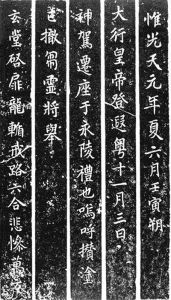 惟光天元年夏六月壬寅朔
大行皇帝登遐粤十一月三日
神駕遷座于永陵禮也嗚呼攢塗
撤帟靈將舉
玄堂啓扉龍輴戒路六合悲慘萬